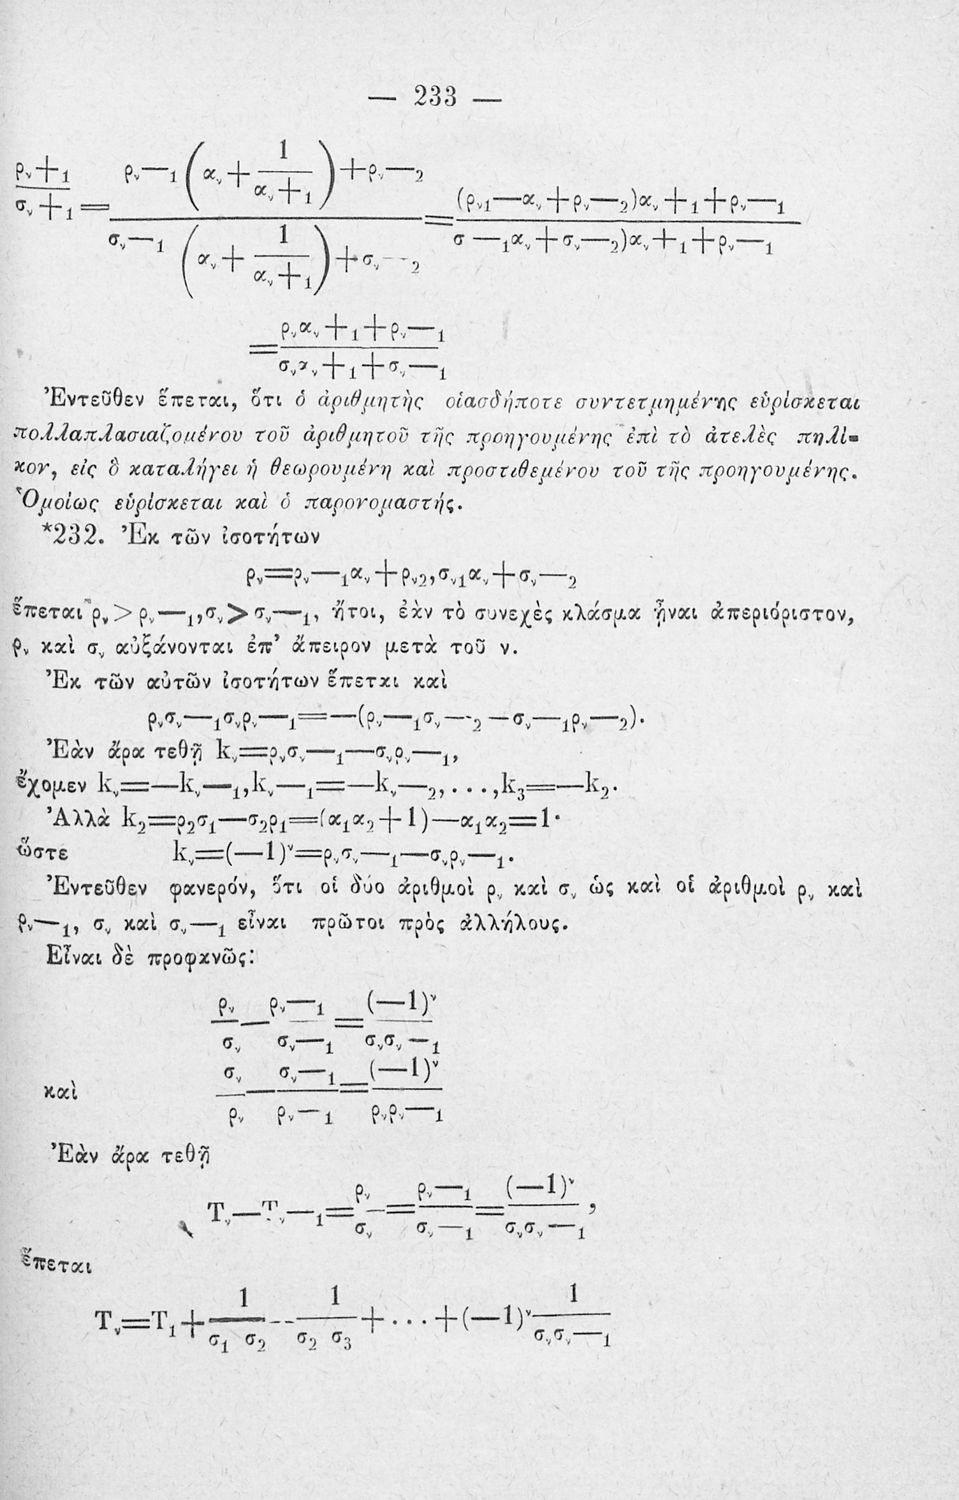 — 233 —
ρᵥ+₁/σᵥ+₁ = (ρᵥ—₁(αᵥ+1/αᵥ+₁)+ρᵥ—₂)/(σᵥ—₁(αᵥ+1/αᵥ+₁)+σᵥ—₂) = ((ρᵥ₁—αᵥ+ρᵥ—₂)αᵥ+₁+ρᵥ—₁)/(σ —₁αᵥ+σᵥ—₂)αᵥ+₁+ρᵥ—₁)
= (ρᵥαᵥ+₁+ρᵥ—₁)/(σᵥαᵥ+₁+σᵥ—₁)
Ἐντεῦθεν ἕπεται, ὅτι ὁ ἀριθμητὴς οἱασδήποτε συντετμημένης εὑρίσκεται
πολλαπλασιαζομένου τοῦ ἀριθμητοῦ τῆς προηγουμένης ἐπὶ τὸ ἀτελὲς πηλί-
κον, εἰς ὃ καταλήγει ἡ θεωρουμένη καὶ προστιθεμένου τοῦ τῆς προηγουμένης.
Ὁμοίως εὑρίσκεται καὶ ὁ παρονομαστής.
*232. Ἐκ τῶν ἰσοτήτων
ρᵥ=ρᵥ—₁αᵥ+ρᵥ₂,σᵥ₁αᵥ+σᵥ—₂
ἕπεται ρᵥ>ρᵥ—₁,σᵥ>σᵥ—₁, ἤτοι, ἐὰν τὸ συνεχὲς κλάσμα ἦναι ἀπεριόριστον,
ρᵥ καὶ σᵥ αὐξάνονται ἐπ' ἄπειρον μετὰ τοῦ ν.
Ἐκ τῶν αὐτῶν ἰσοτήτων ἕπεται καὶ
ρᵥσᵥ—₁σᵥρᵥ—₁=—(ρᵥ—₁σᵥ—₂—σᵥ—₁ρᵥ—₂).
Ἐὰν ἄρα τεθῇ kᵥ=ρᵥσᵥ—₁—σᵥρᵥ—₁,
ἔχομεν kᵥ=—kᵥ—₁,kᵥ—₁=—kᵥ—₂,...,k₃=—k₂.
Ἀλλὰ k₂=ρ₂σ₁—σ₂ρ₁=(α₁α₂+1)—α₁α₂=1·
ὥστε kᵥ=(—1)ᵛ=ρᵥσᵥ—₁—σᵥρᵥ—₁.
Ἐντεῦθεν φανερόν, ὅτι οἱ δύο ἀριθμοὶ ρᵥ καὶ σᵥ ὡς καὶ οἱ ἀριθμοὶ ρᵥ καὶ
ρᵥ—₁, σᵥ καὶ σᵥ—₁ εἶναι πρῶτοι πρὸς ἀλλήλους.
Εἶναι δὲ προφανῶς:
ρᵥ/σᵥ—ρᵥ—₁/σᵥ—₁=(—1)ᵛ/σᵥσᵥ—₁
καὶ σᵥ/ρᵥ—σᵥ—₁/ρᵥ—₁=(—1)ᵛ/ρᵥρᵥ—₁
Ἐὰν ἄρα τεθῇ
Tᵥ—Tᵥ—₁=ρᵥ/σᵥ—=ρᵥ—₁/σᵥ—₁=(—1)ᵛ/σᵥσᵥ—₁,
ἕπεται
Tᵥ=T₁+1/σ₁ σ₂—1/σ₂ σ₃+...+(—1)ᵛ1/σᵥσᵥ—₁